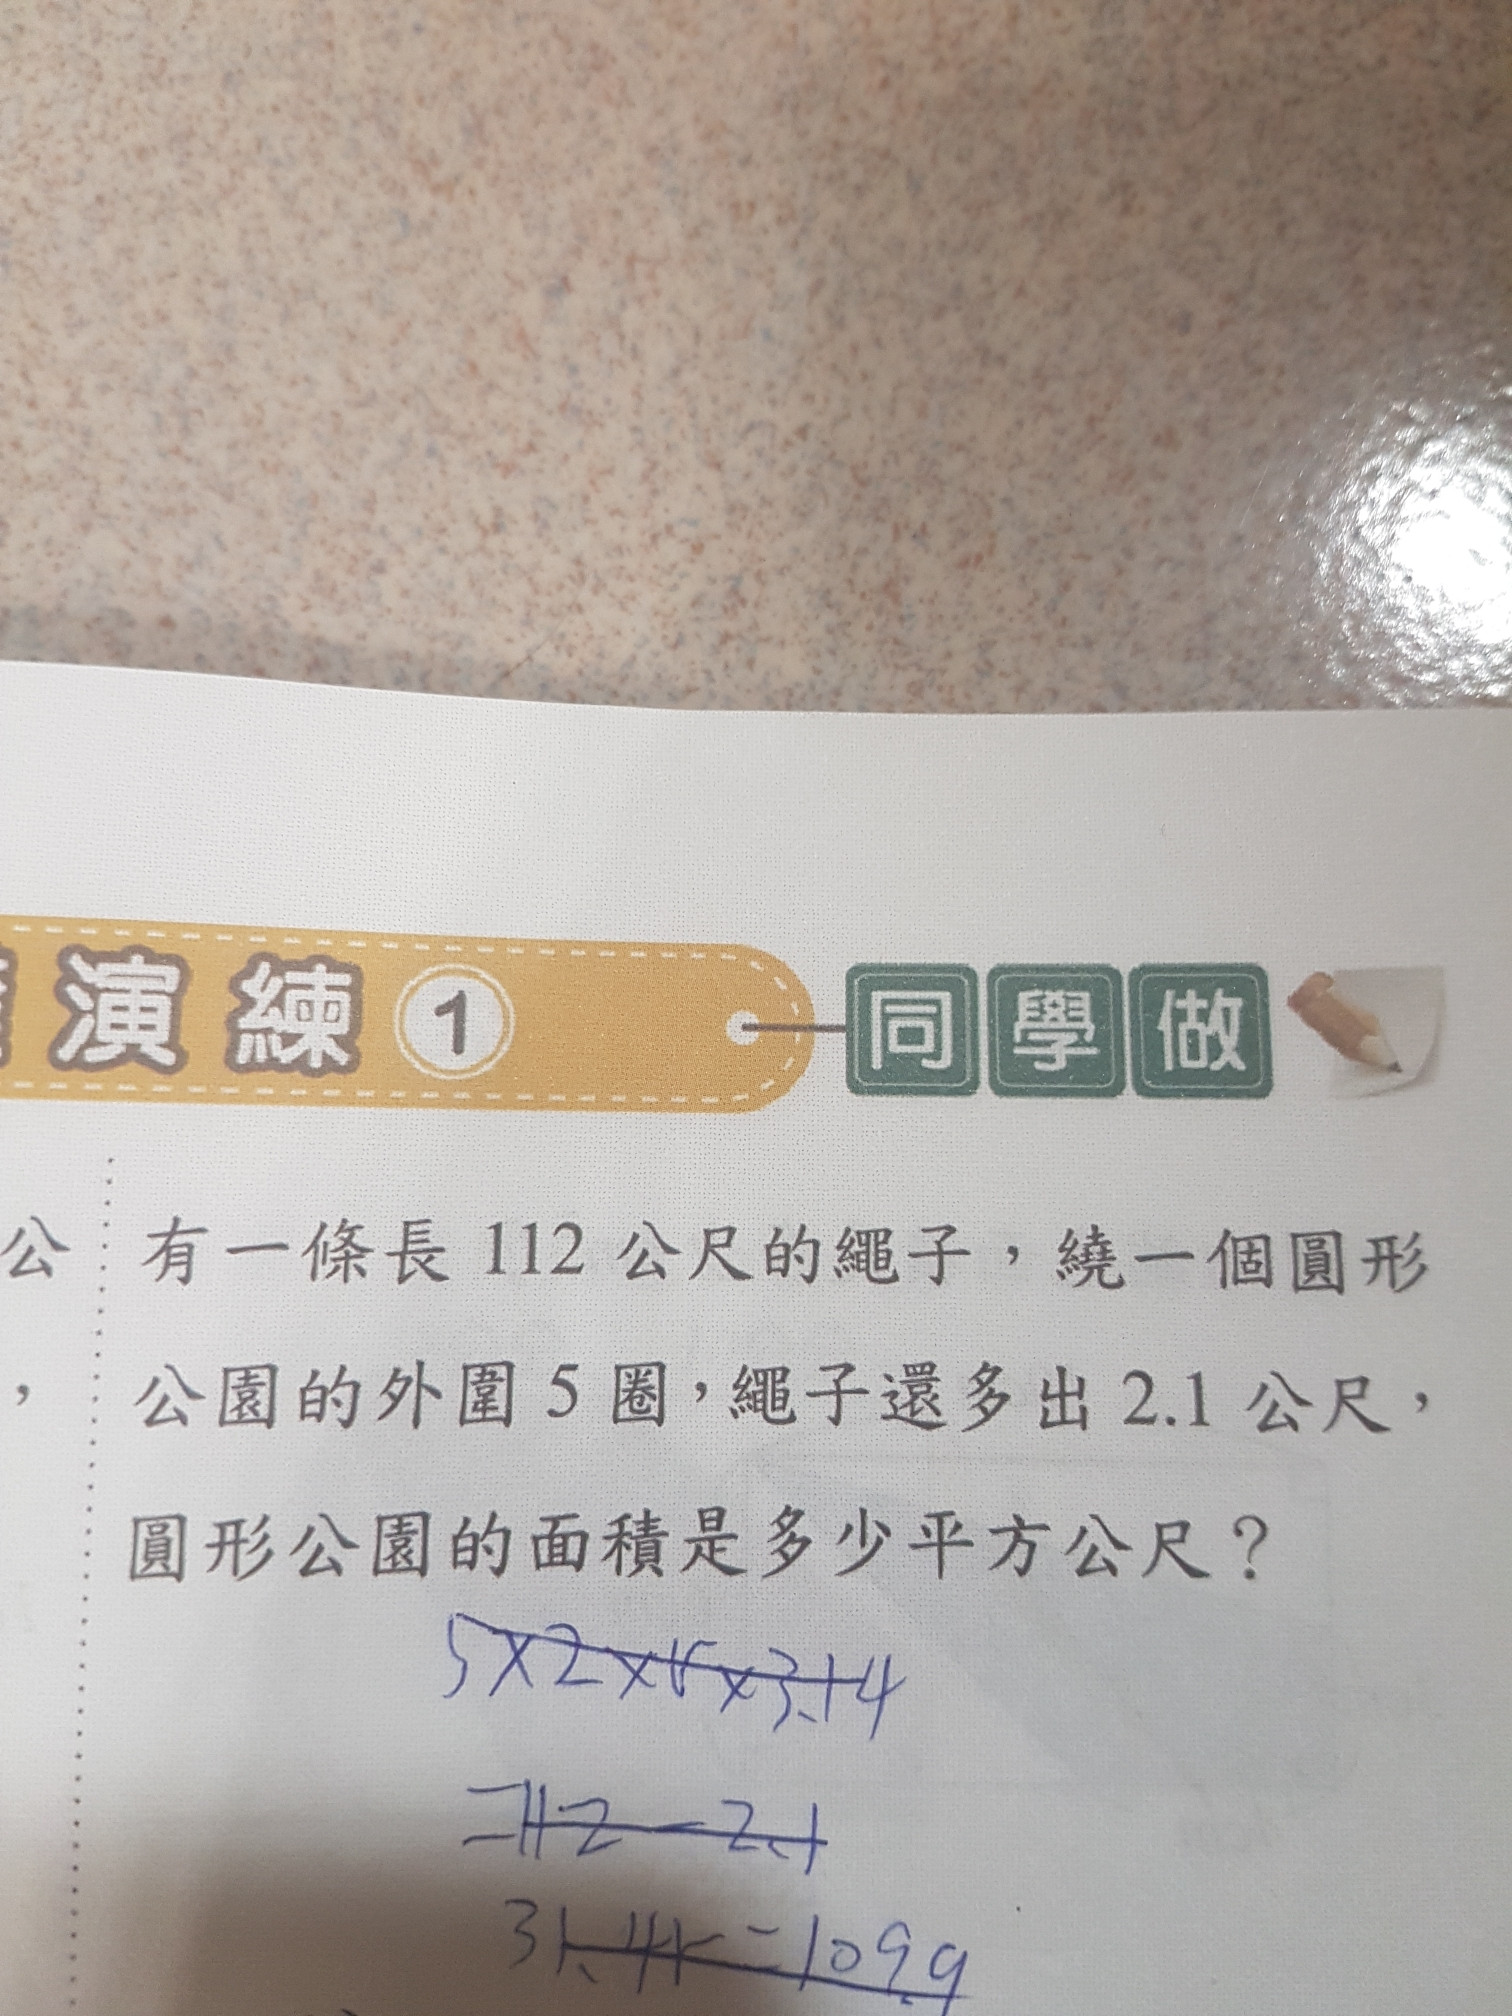 演練 1 同學做
公
有一條長 112 公尺的繩子，繞一個圓形
，
公園的外圍 5 圈，繩子還多出 2.1 公尺，
圓形公園的面積是多少平方公尺？
5×2×r×3.14
=112-2.1
31.4r=109.9